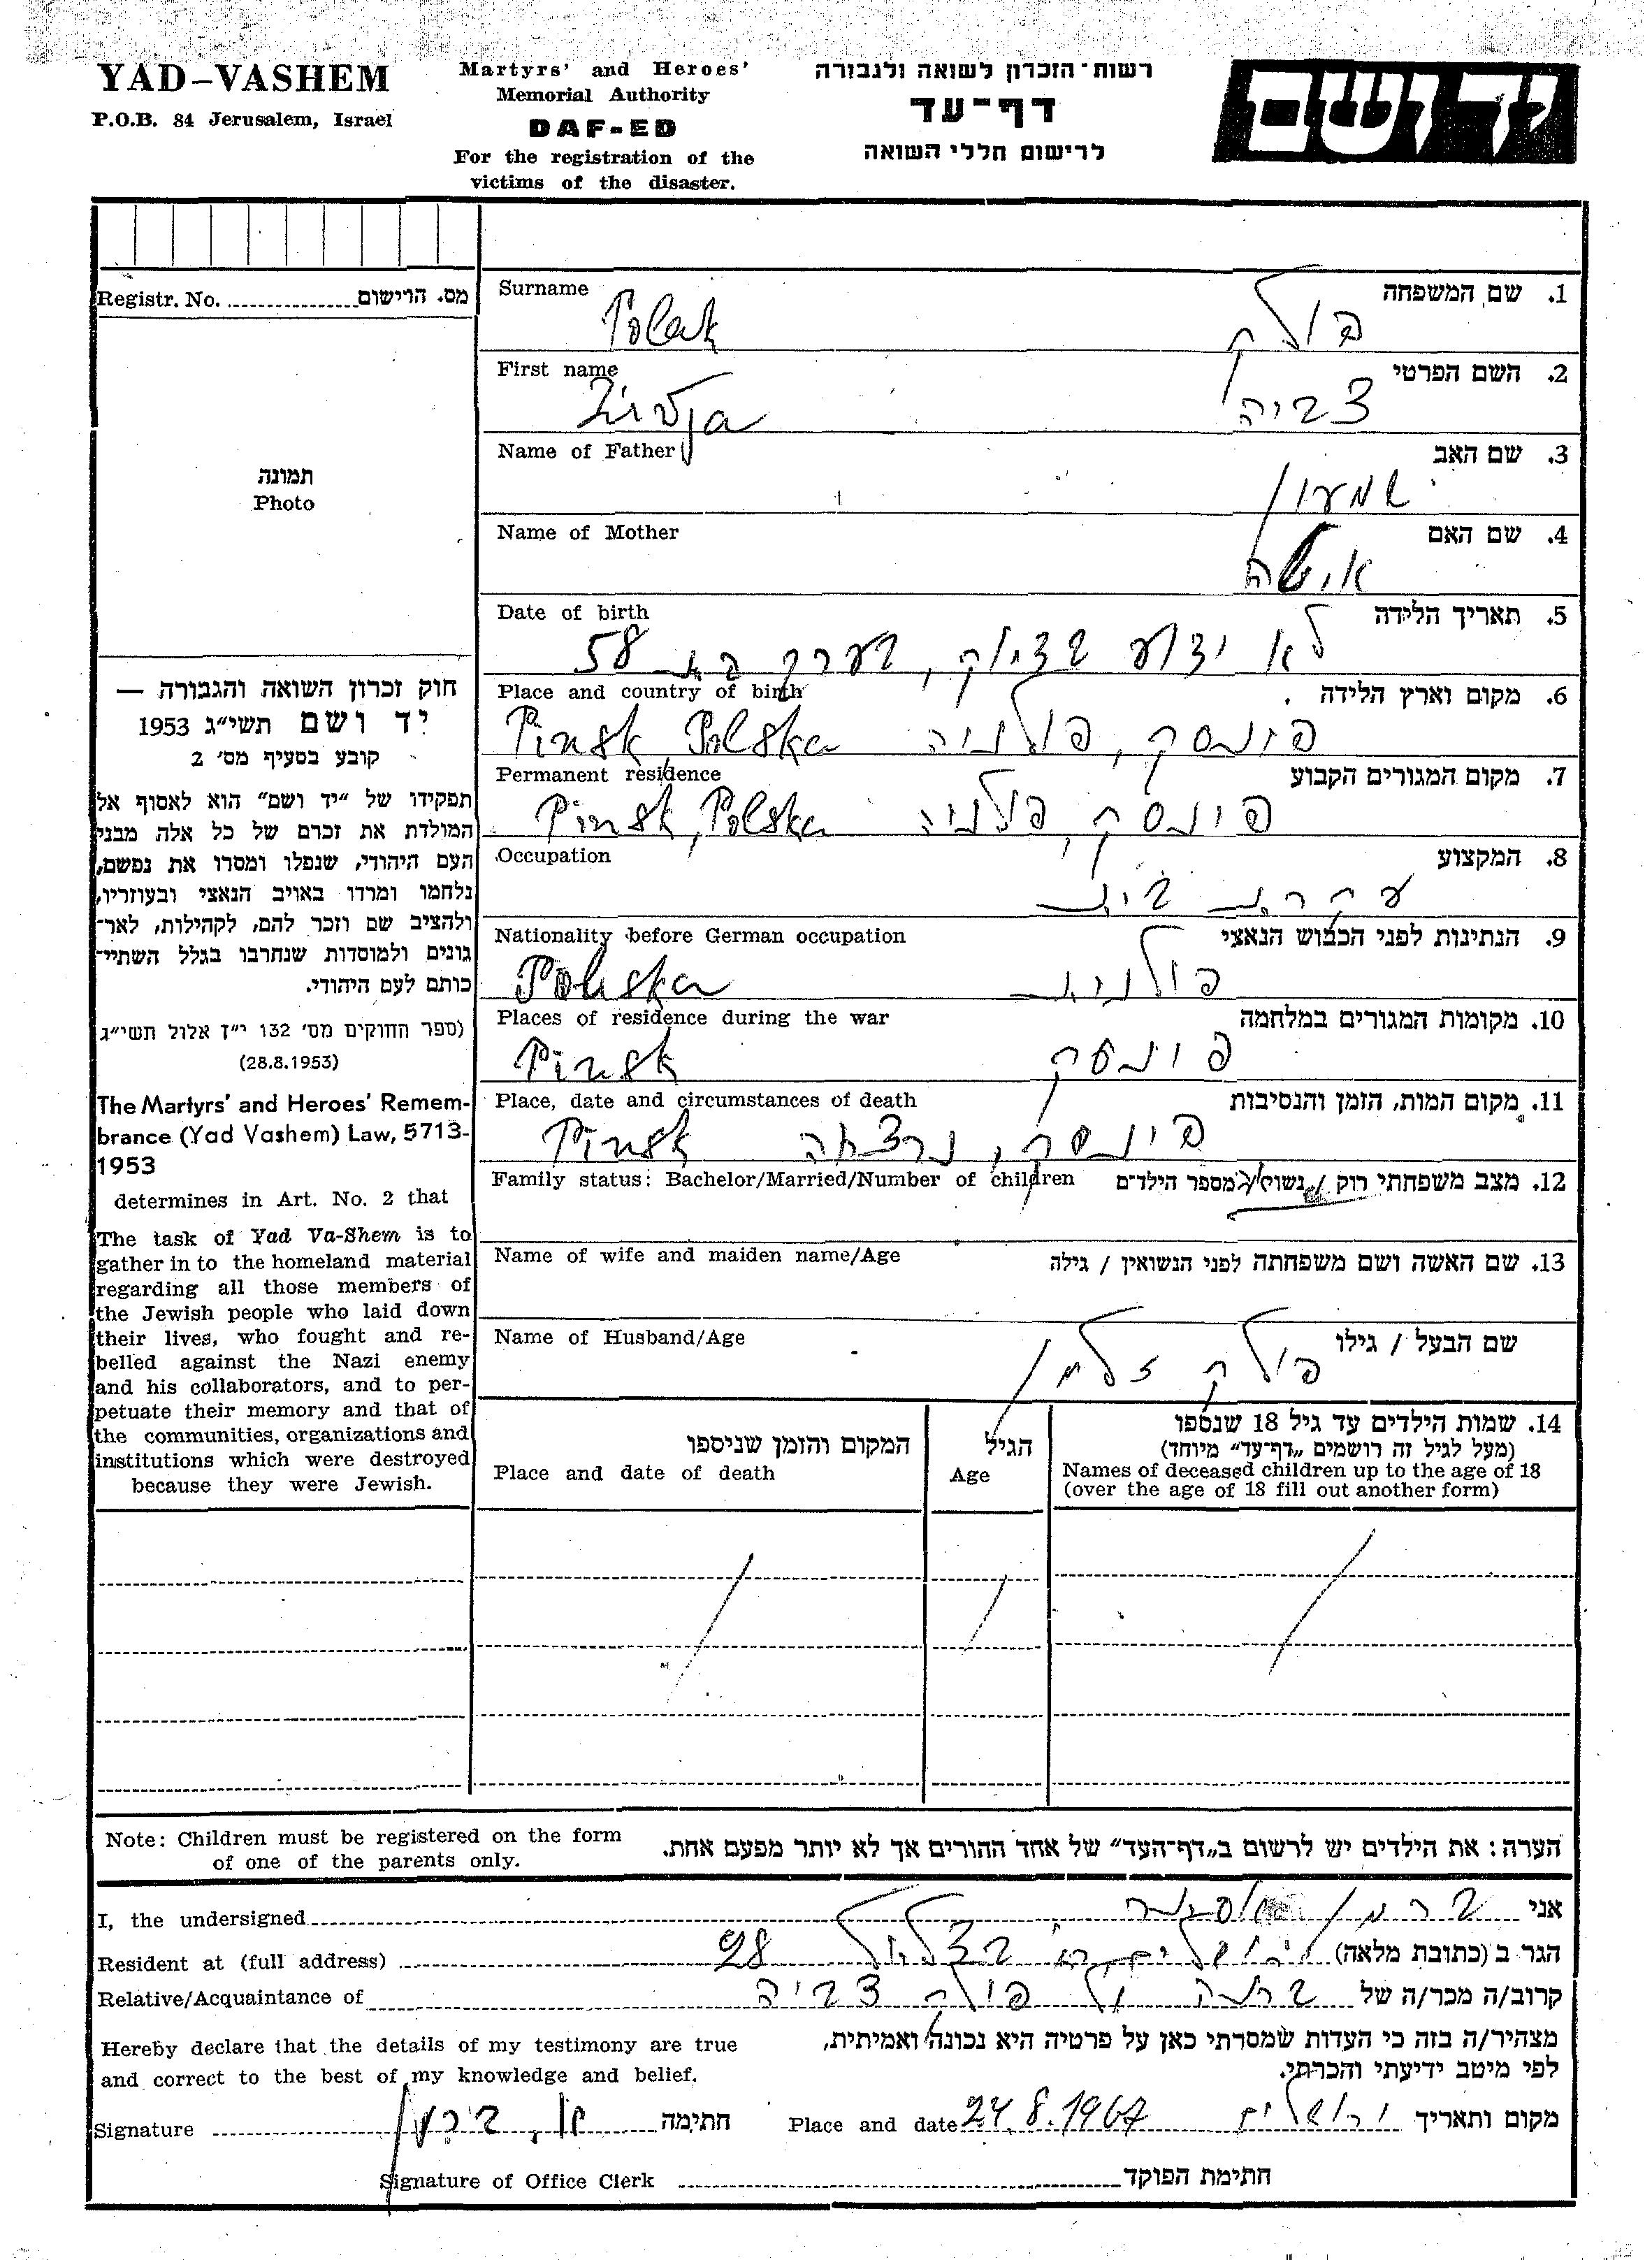 YAD-VASHEM
P.O.B. 84 Jerusalem, Israel
Martyrs' and Heroes'
Memorial Authority
DAF-ED
For the registration of the
victims of the disaster.
רשות-הזכרון לשואה ולגבורה
דף-עד
לרישום חללי השואה
יד ושם
Registr. No. מס. הרישום
תמונה
Photo
חוק זכרון השואה והגבורה —
יד ושם תשי״ג 1953
קובע בסעיף מס׳ 2
תפקידו של ״יד ושם״ הוא לאסוף אל
המולדת את זכרם של כל אלה מבני
העם היהודי, שנפלו ומסרו את נפשם,
נלחמו ומרדו באויב הנאצי ובעוזריו,
ולהציב שם וזכר להם, לקהילות, לאר-
גונים ולמוסדות שנחרבו בגלל השתיי-
כותם לעם היהודי.
(ספר החוקים מס׳ 132 י״ז אלול תשי״ג
(28.8.1953)
The Martyrs' and Heroes' Remem-
brance (Yad Vashem) Law, 5713-
1953
determines in Art. No. 2 that
The task of Yad Va-Shem is to
gather in to the homeland material
regarding all those members of
the Jewish people who laid down
their lives, who fought and re-
belled against the Nazi enemy
and his collaborators, and to per-
petuate their memory and that of
the communities, organizations and
institutions which were destroyed
because they were Jewish.
Surname 1. שם המשפחה
Polak פולק
First name 2. השם הפרטי
Ziwja צביה
Name of Father 3. שם האב
שמעון
Name of Mother 4. שם האם
איטה
Date of birth 5. תאריך הלידה
לא ידוע בדיוק, בערך בת 58
Place and country of birth 6. מקום וארץ הלידה
Pinsk Polska פינסק, פולניה
Permanent residence 7. מקום המגורים הקבוע
Pinsk, Polska פינסק, פולניה
Occupation 8. המקצוע
עקרת בית
Nationality before German occupation 9. הנתינות לפני הכבוש הנאצי
Polska פולנית
Places of residence during the war 10. מקומות המגורים במלחמה
Pinsk פינסק
Place, date and circumstances of death 11. מקום המות, הזמן והנסיבות
Pinsk פינסק, נרצחה
Family status: Bachelor/Married/Number of children 12. מצב משפחתי רוק / נשוי / מספר הילדים
Name of wife and maiden name/Age 13. שם האשה ושם משפחתה לפני הנשואין / גילה
Name of Husband/Age שם הבעל / גילו
פולק זלמן
14. שמות הילדים עד גיל 18 שנספו
(מעל לגיל זה רושמים ״דף-עד״ מיוחד)
Names of deceased children up to the age of 18
(over the age of 18 fill out another form)
הגיל
Age
המקום והזמן שניספו
Place and date of death
Note: Children must be registered on the form
of one of the parents only.
הערה: את הילדים יש לרשום ב״דף-העד״ של אחד ההורים אך לא יותר מפעם אחת.
I, the undersigned אני ברמן
Resident at (full address) הגר ב (כתובת מלאה) ירושלים רח׳ בצלאל 28
Relative/Acquaintance of קרוב/ה מכר/ה של פולק צביה
Hereby declare that the details of my testimony are true
and correct to the best of my knowledge and belief.
מצהיר/ה בזה כי העדות שמסרתי כאן על פרטיה היא נכונה ואמיתית,
לפי מיטב ידיעתי והכרתי.
Signature חתימה Place and date 24.8.1967 ירושלים מקום ותאריך
Signature of Office Clerk חתימת הפוקד